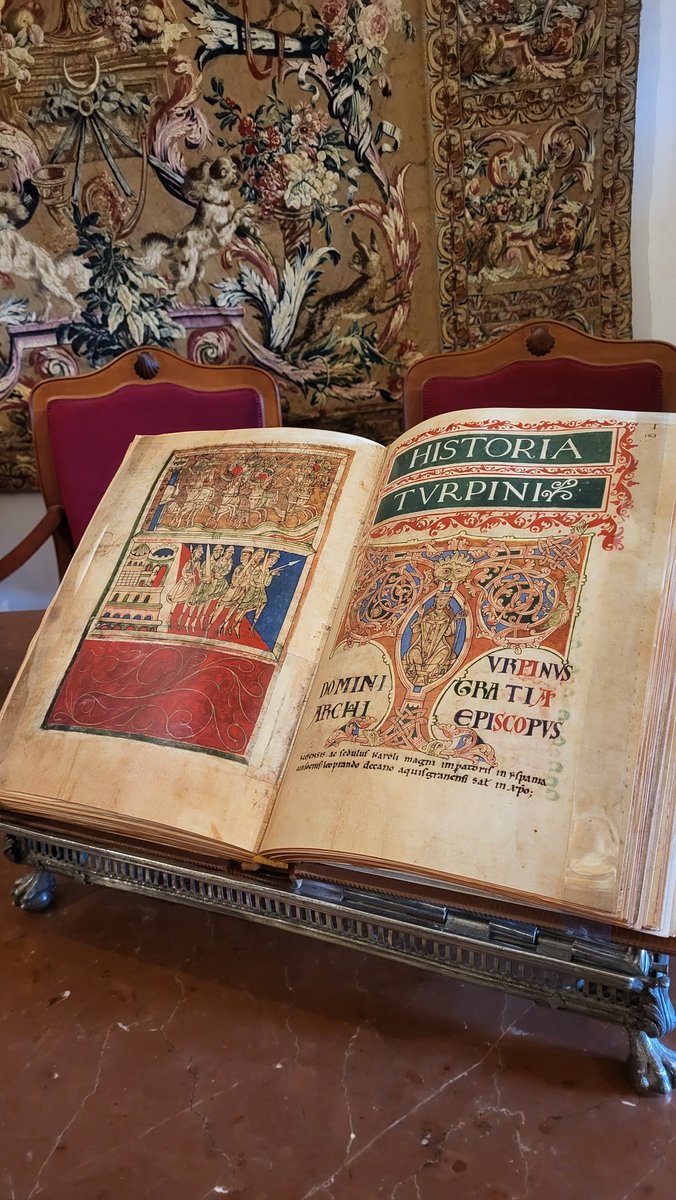 HISTORIA
TVRPINI
VRPINVS
DOMINI GRATIA
ARCHI EPISCOPVS
ac sedulus Karoli magni impatoris in yspania
leoprando decano aquisgranensi sal in xpo;